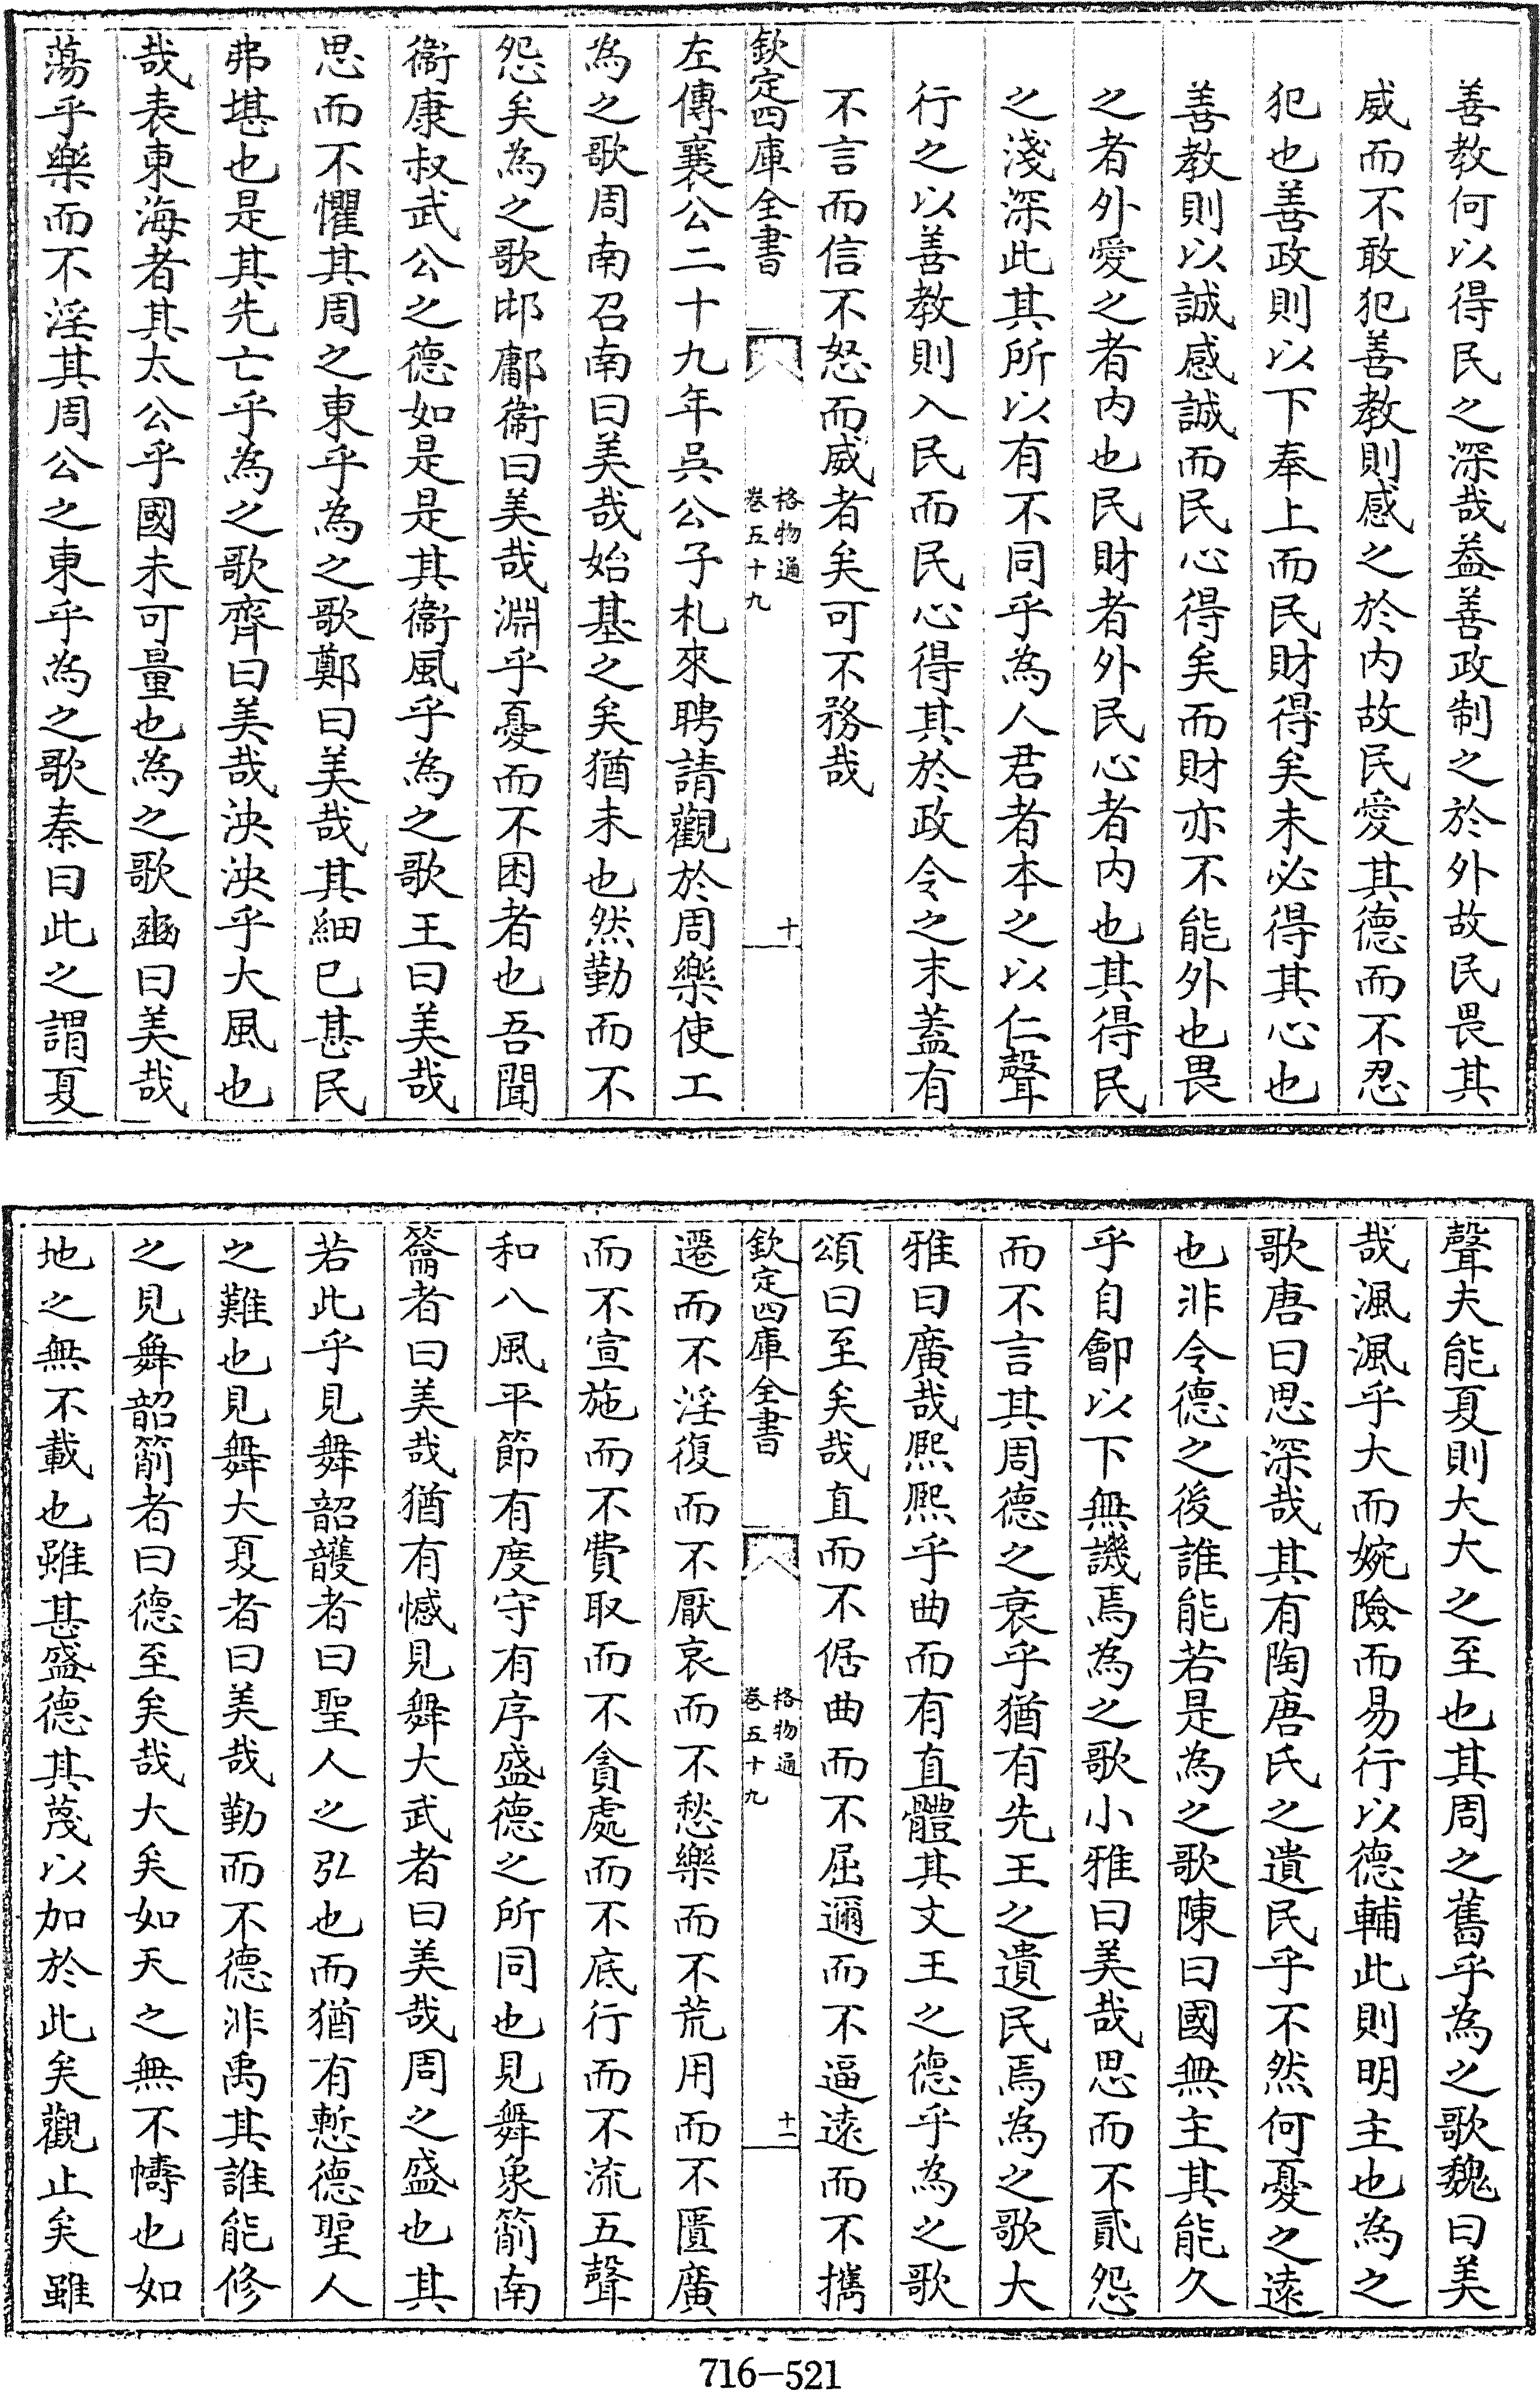 善教何以得民之深哉葢善政制之於外故民畏其
威而不敢犯善教則感之於内故民愛其德而不忍
犯也善政則以下奉上而民財得矣未必得其心也
善教則以誠感誠而民心得矣而財亦不能外也畏
之者外愛之者内也民財者外民心者内也其得民
之淺深此其所以有不同乎為人君者本之以仁聲
行之以善教則入民而民心得其於政令之末蓋有
不言而信不怒而威者矣可不務哉
欽定四庫全書
格物通
卷五十九
十
左傳襄公二十九年吳公子札來聘請觀於周樂使工
為之歌周南召南曰美哉始基之矣猶未也然勤而不
怨矣為之歌邶鄘衞曰美哉淵乎憂而不困者也吾聞
衞康叔武公之德如是是其衞風乎為之歌王曰美哉
思而不懼其周之東乎為之歌鄭曰美哉其細已甚民
弗堪也是其先亡乎為之歌齊曰美哉泱泱乎大風也
哉表東海者其太公乎國未可量也為之歌豳曰美哉
蕩乎樂而不淫其周公之東乎為之歌秦曰此之謂夏
聲夫能夏則大大之至也其周之舊乎為之歌魏曰美
哉渢渢乎大而婉險而易行以德輔此則明主也為之
歌唐曰思深哉其有陶唐氏之遺民乎不然何憂之遠
也非令德之後誰能若是為之歌陳曰國無主其能久
乎自鄶以下無譏焉為之歌小雅曰美哉思而不貳怨
而不言其周德之衰乎猶有先王之遺民焉為之歌大
雅曰廣哉熈熈乎曲而有直體其文王之德乎為之歌
頌曰至矣哉直而不倨曲而不屈邇而不逼遠而不攜
欽定四庫全書
格物通
卷五十九
十一
遷而不淫復而不厭哀而不愁樂而不荒用而不匱廣
而不宣施而不費取而不貪處而不底行而不流五聲
和八風平節有度守有序盛德之所同也見舞象箾南
籥者曰美哉猶有憾見舞大武者曰美哉周之盛也其
若此乎見舞韶頀者曰聖人之弘也而猶有慙德聖人
之難也見舞大夏者曰美哉勤而不德非禹其誰能修
之見舞韶箾者曰德至矣哉大矣如天之無不幬也如
地之無不載也雖甚盛德其蔑以加於此矣觀止矣雖
716-521